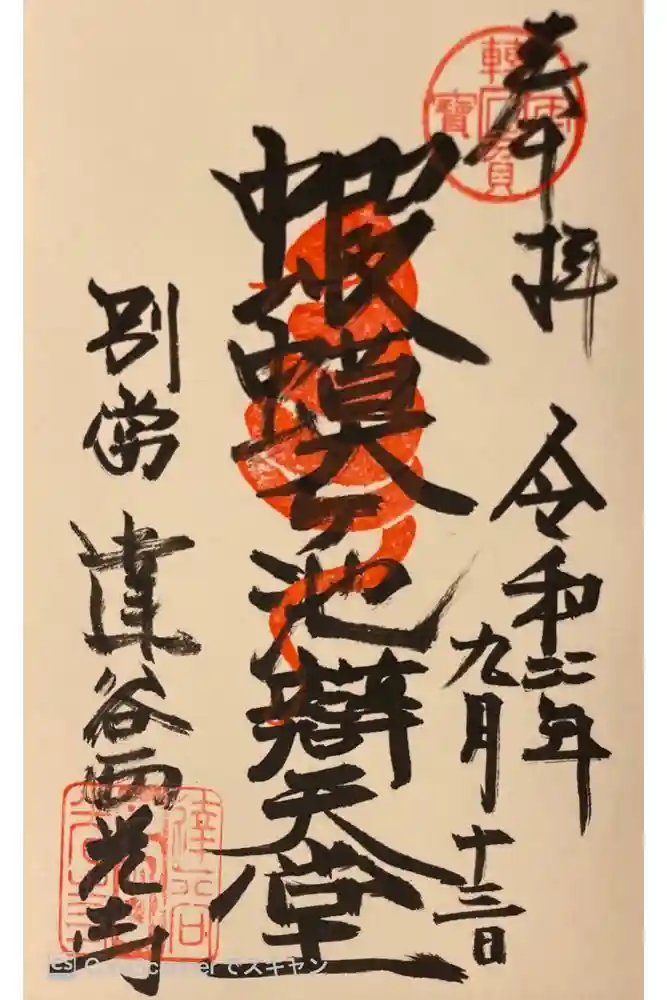 奉拝
令和二年
九月十三日
蝦蟆ヶ池辯天堂
別當
達谷西光寺
CamScannerでスキャン